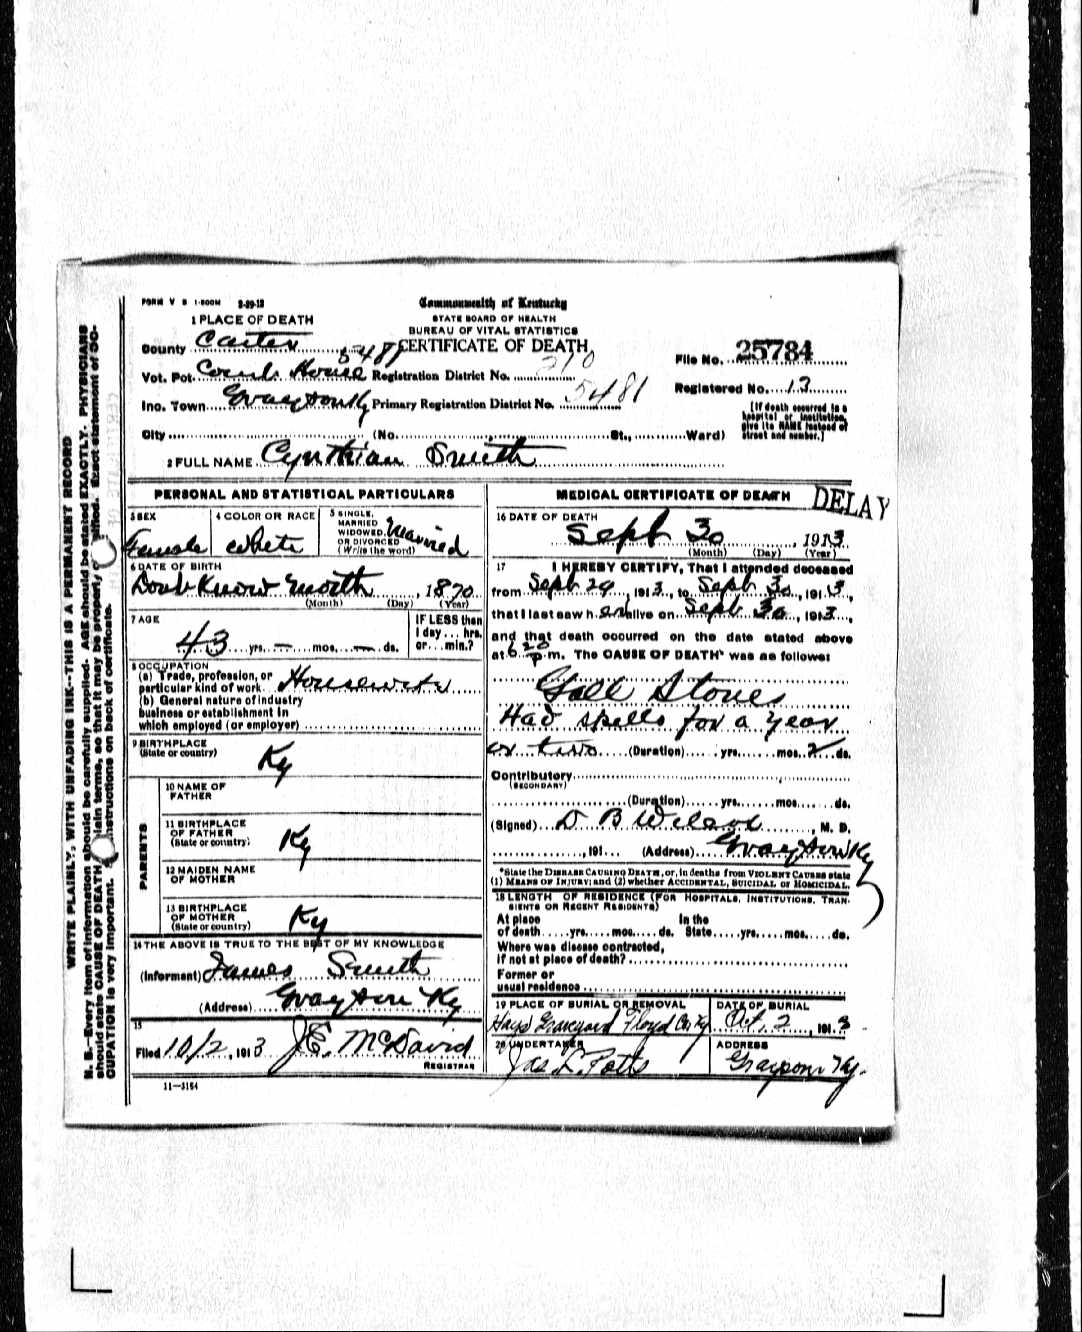 FORM V S 1-500M 3-29-12
Commonwealth of Kentucky
STATE BOARD OF HEALTH
BUREAU OF VITAL STATISTICS
CERTIFICATE OF DEATH
1 PLACE OF DEATH
County Carter 5481
Vot. Pct. Court House Registration District No. 210
Inc. Town Grayson Ky Primary Registration District No. 5481
City (No. St., Ward)
File No. 25784
Registered No. 13
[If death occurred in a hospital or institution, give its NAME instead of street and number.]
2 FULL NAME Cynthian Smith
PERSONAL AND STATISTICAL PARTICULARS
3 SEX Female
4 COLOR OR RACE White
5 SINGLE, MARRIED WIDOWED, OR DIVORCED (Write the word) Married
6 DATE OF BIRTH
Dont Know Month, 1870
(Month) (Day) (Year)
7 AGE
43 yrs. — mos. — ds.
IF LESS than 1 day... hrs. or... min.?
8 OCCUPATION
(a) Trade, profession, or particular kind of work Housewife
(b) General nature of industry business or establishment in which employed (or employer)
9 BIRTHPLACE
(State or country) Ky
PARENTS
10 NAME OF FATHER
11 BIRTHPLACE OF FATHER (State or country) Ky
12 MAIDEN NAME OF MOTHER
13 BIRTHPLACE OF MOTHER (State or country) Ky
14 THE ABOVE IS TRUE TO THE BEST OF MY KNOWLEDGE
(Informant) James Smith
(Address) Grayson Ky
15
Filed 10/2, 1913 J.E. McDavid
REGISTRAR
11—3184
MEDICAL CERTIFICATE OF DEATH
DELAY
16 DATE OF DEATH
Sept 30, 1913
(Month) (Day) (Year)
17 I HEREBY CERTIFY, That I attended deceased
from Sept 29, 1913, to Sept 30, 1913,
that I last saw her alive on Sept 30, 1913,
and that death occurred on the date stated above
at 6 20 p.m. The CAUSE OF DEATH* was as follows:
Gall Stones
Had spells for a year
or two (Duration) yrs. mos. 2 ds.
Contributory
(SECONDARY)
(Duration) yrs. mos. ds.
(Signed) D B Wilcox, M. D.
, 191 (Address) Grayson Ky
*State the DISEASE CAUSING DEATH, or, in deaths from VIOLENT CAUSES state
(1) MEANS OF INJURY; and (2) whether ACCIDENTAL, SUICIDAL or HOMICIDAL.
18 LENGTH OF RESIDENCE (FOR HOSPITALS, INSTITUTIONS, TRANSIENTS OR RECENT RESIDENTS)
At place of death yrs. mos. ds. In the State yrs. mos. ds.
Where was disease contracted,
if not at place of death?
Former or
usual residence
19 PLACE OF BURIAL OR REMOVAL
Hays Graveyard Floyd Co Ky
DATE OF BURIAL
Oct. 2, 1913
20 UNDERTAKER
Jas L. Potts
ADDRESS
Grayson Ky.
WRITE PLAINLY, WITH UNFADING INK--THIS IS A PERMANENT RECORD
N. B.—Every item of information should be carefully supplied. AGE should be stated EXACTLY. PHYSICIANS
should state CAUSE OF DEATH in plain terms, so that it may be properly classified. Exact statement of OC-
CUPATION is very important. See instructions on back of certificate.